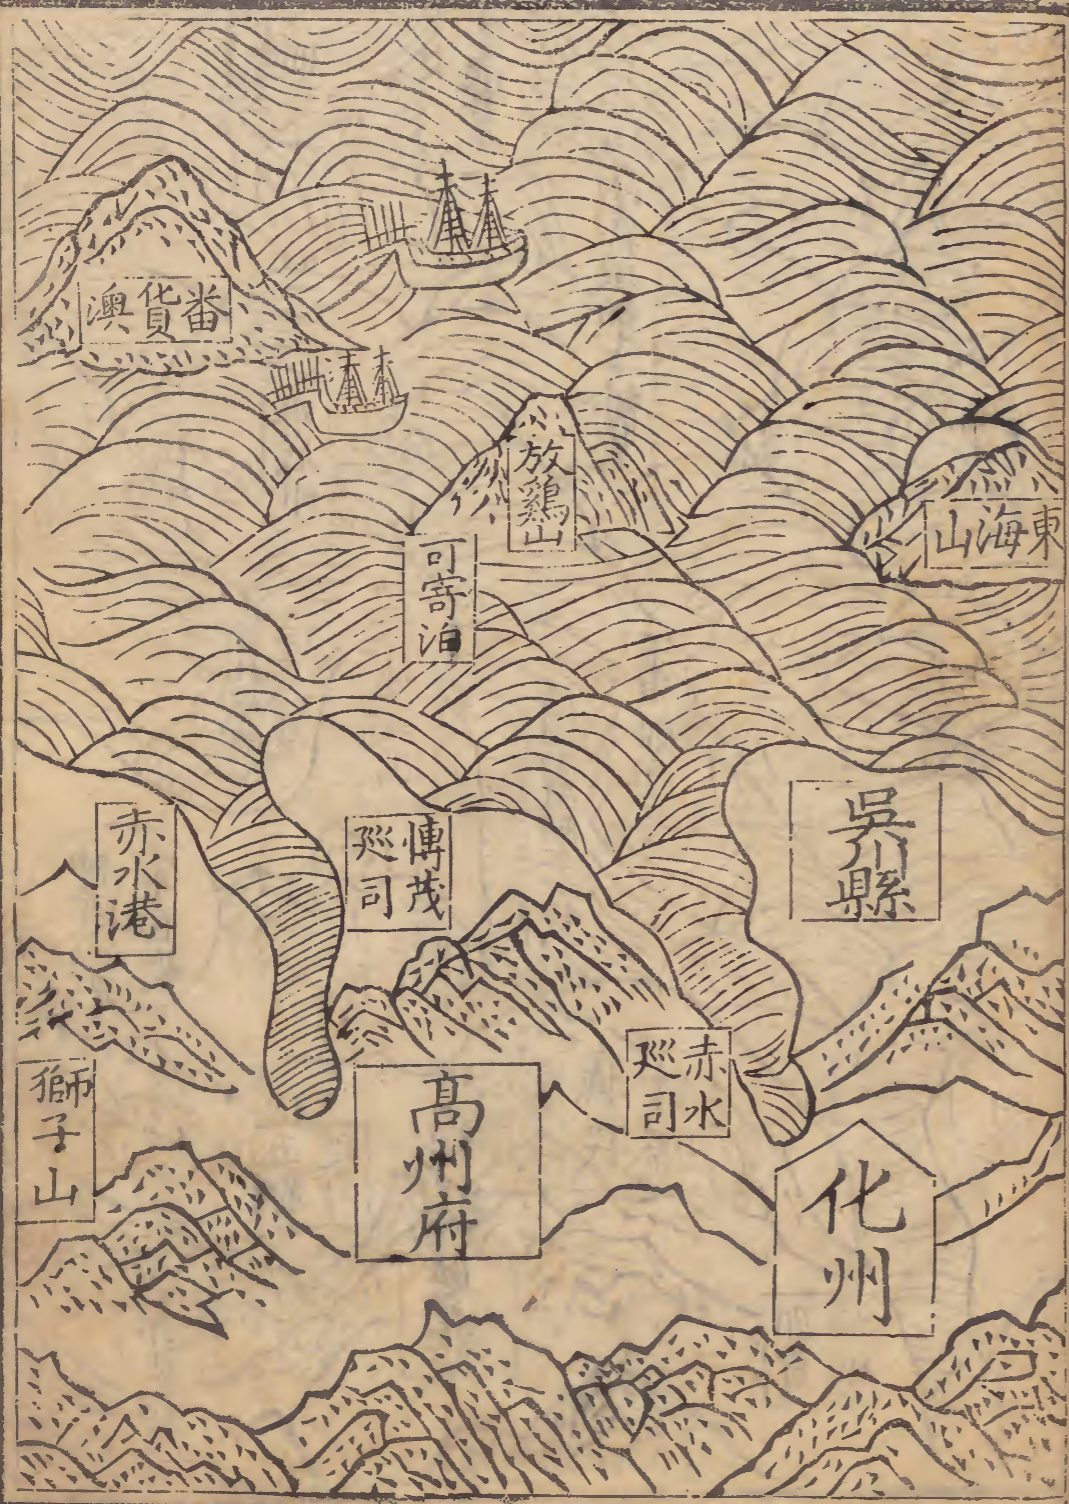 番貨澳
放鷄山
東海山
可寄泊
吳川縣
赤水港
博茂
巡司
赤水
巡司
獅子山
高州府
化州